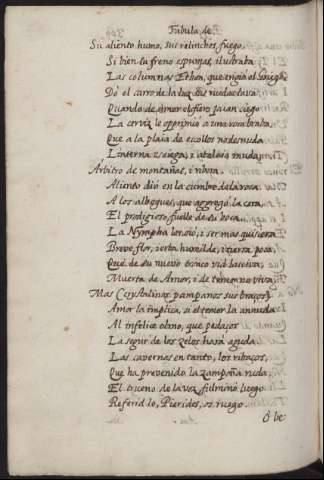 Fabula, de
Su aliento humo, sus relinchos, fuego,
Si bien su freno espumas, ilustraba
Las columnas Ethon, que erigio el Griego
Dò el carro de la luz sus ruedas laua
Quando de amor el fiero jaian ciego
La cerviz le opprimiò a una roca braba
Que a la plaia de escollos no desnuda
Linterna es ciega, i atalaia muda.
Arbitro de montañas, i ribera,
Aliento diò en la cumbre de la roca
A los albogues, que aggregò la cera,
El prodigioso fuelle de su boca.
La Nympha los oiò, i ser mas quisiera
Breve flor, ierba humilde, i tierra poca,
Que de su nuevo tronco vid lasciva,
Muerta de Amor, i de temor no viva.
Mas Crystalinos pampanos sus braços
Amor la implica, si el temor la anuda
Al infelice olmo, que pedaços
La segur de los zelos harà aguda.
Las cavernas en tanto, los ribaços,
Que ha prevenido la zampoña ruda,
El trueno de la voz fulminò luego
Referidlo, Pierides, os ruego.
O be